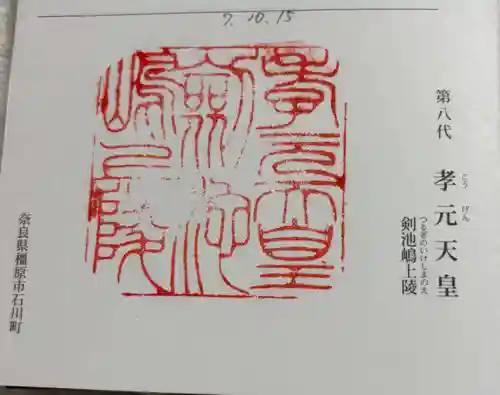 7.10.15
第八代 孝元天皇
こうげん
剣池嶋上陵
つるぎのいけしまのえ
孝元天皇
剣池
嶋上陵
奈良県橿原市石川町